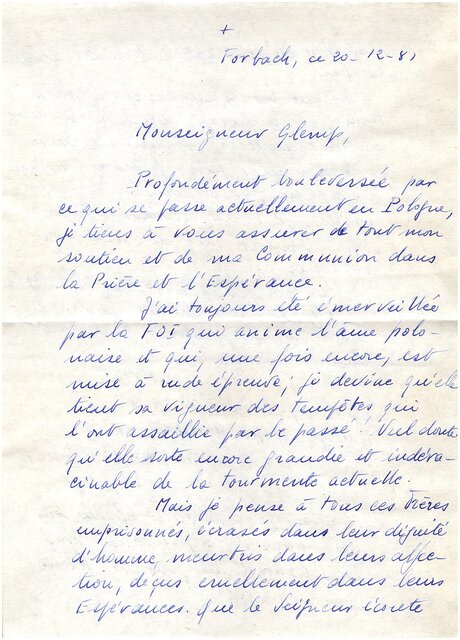 +
Forbach, ce 20-12-81
Monseigneur Glemp,
Profondément bouleversée par
ce qui se passe actuellement en Pologne,
je tiens à vous assurer de tout mon
soutien et de ma Communion dans
la Prière et l'Espérance.
J'ai toujours été émerveillée
par la FOI qui anime l'âme polo-
naise et qui, une fois encore, est
mise à rude épreuve; je devine qu'elle
tient sa vigueur des tempêtes qui
l'ont assaillie par le passé! Nul doute
qu'elle sorte encore grandie et indéra-
cinable de la tourmente actuelle.
Mais je pense à tous ces Frères
emprisonnés, écrasés dans leur dignité
d'homme, meurtris dans leurs affec-
tion, déçus cruellement dans leurs
Espérances. Que le Seigneur écoute